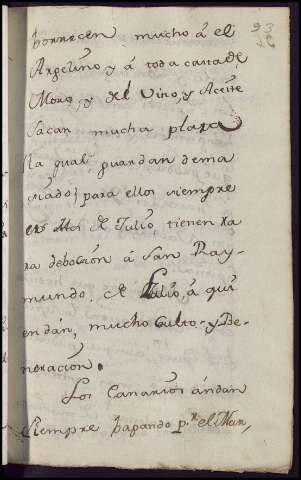 93
borrecen mucho á el
Argelino y á toda casta de
Moro, y del Vino, y Aceite
sacan mucha plata
la qual guardan dema
siado para ellos siempre
en Mes de Julio, tienen ra
ra debocion á San Ray-
mundo, de Julio, á qui
en dán, mucho Culto y Be-
neracion.
Los Canarios ándan
siempre papando p.r el Mar,